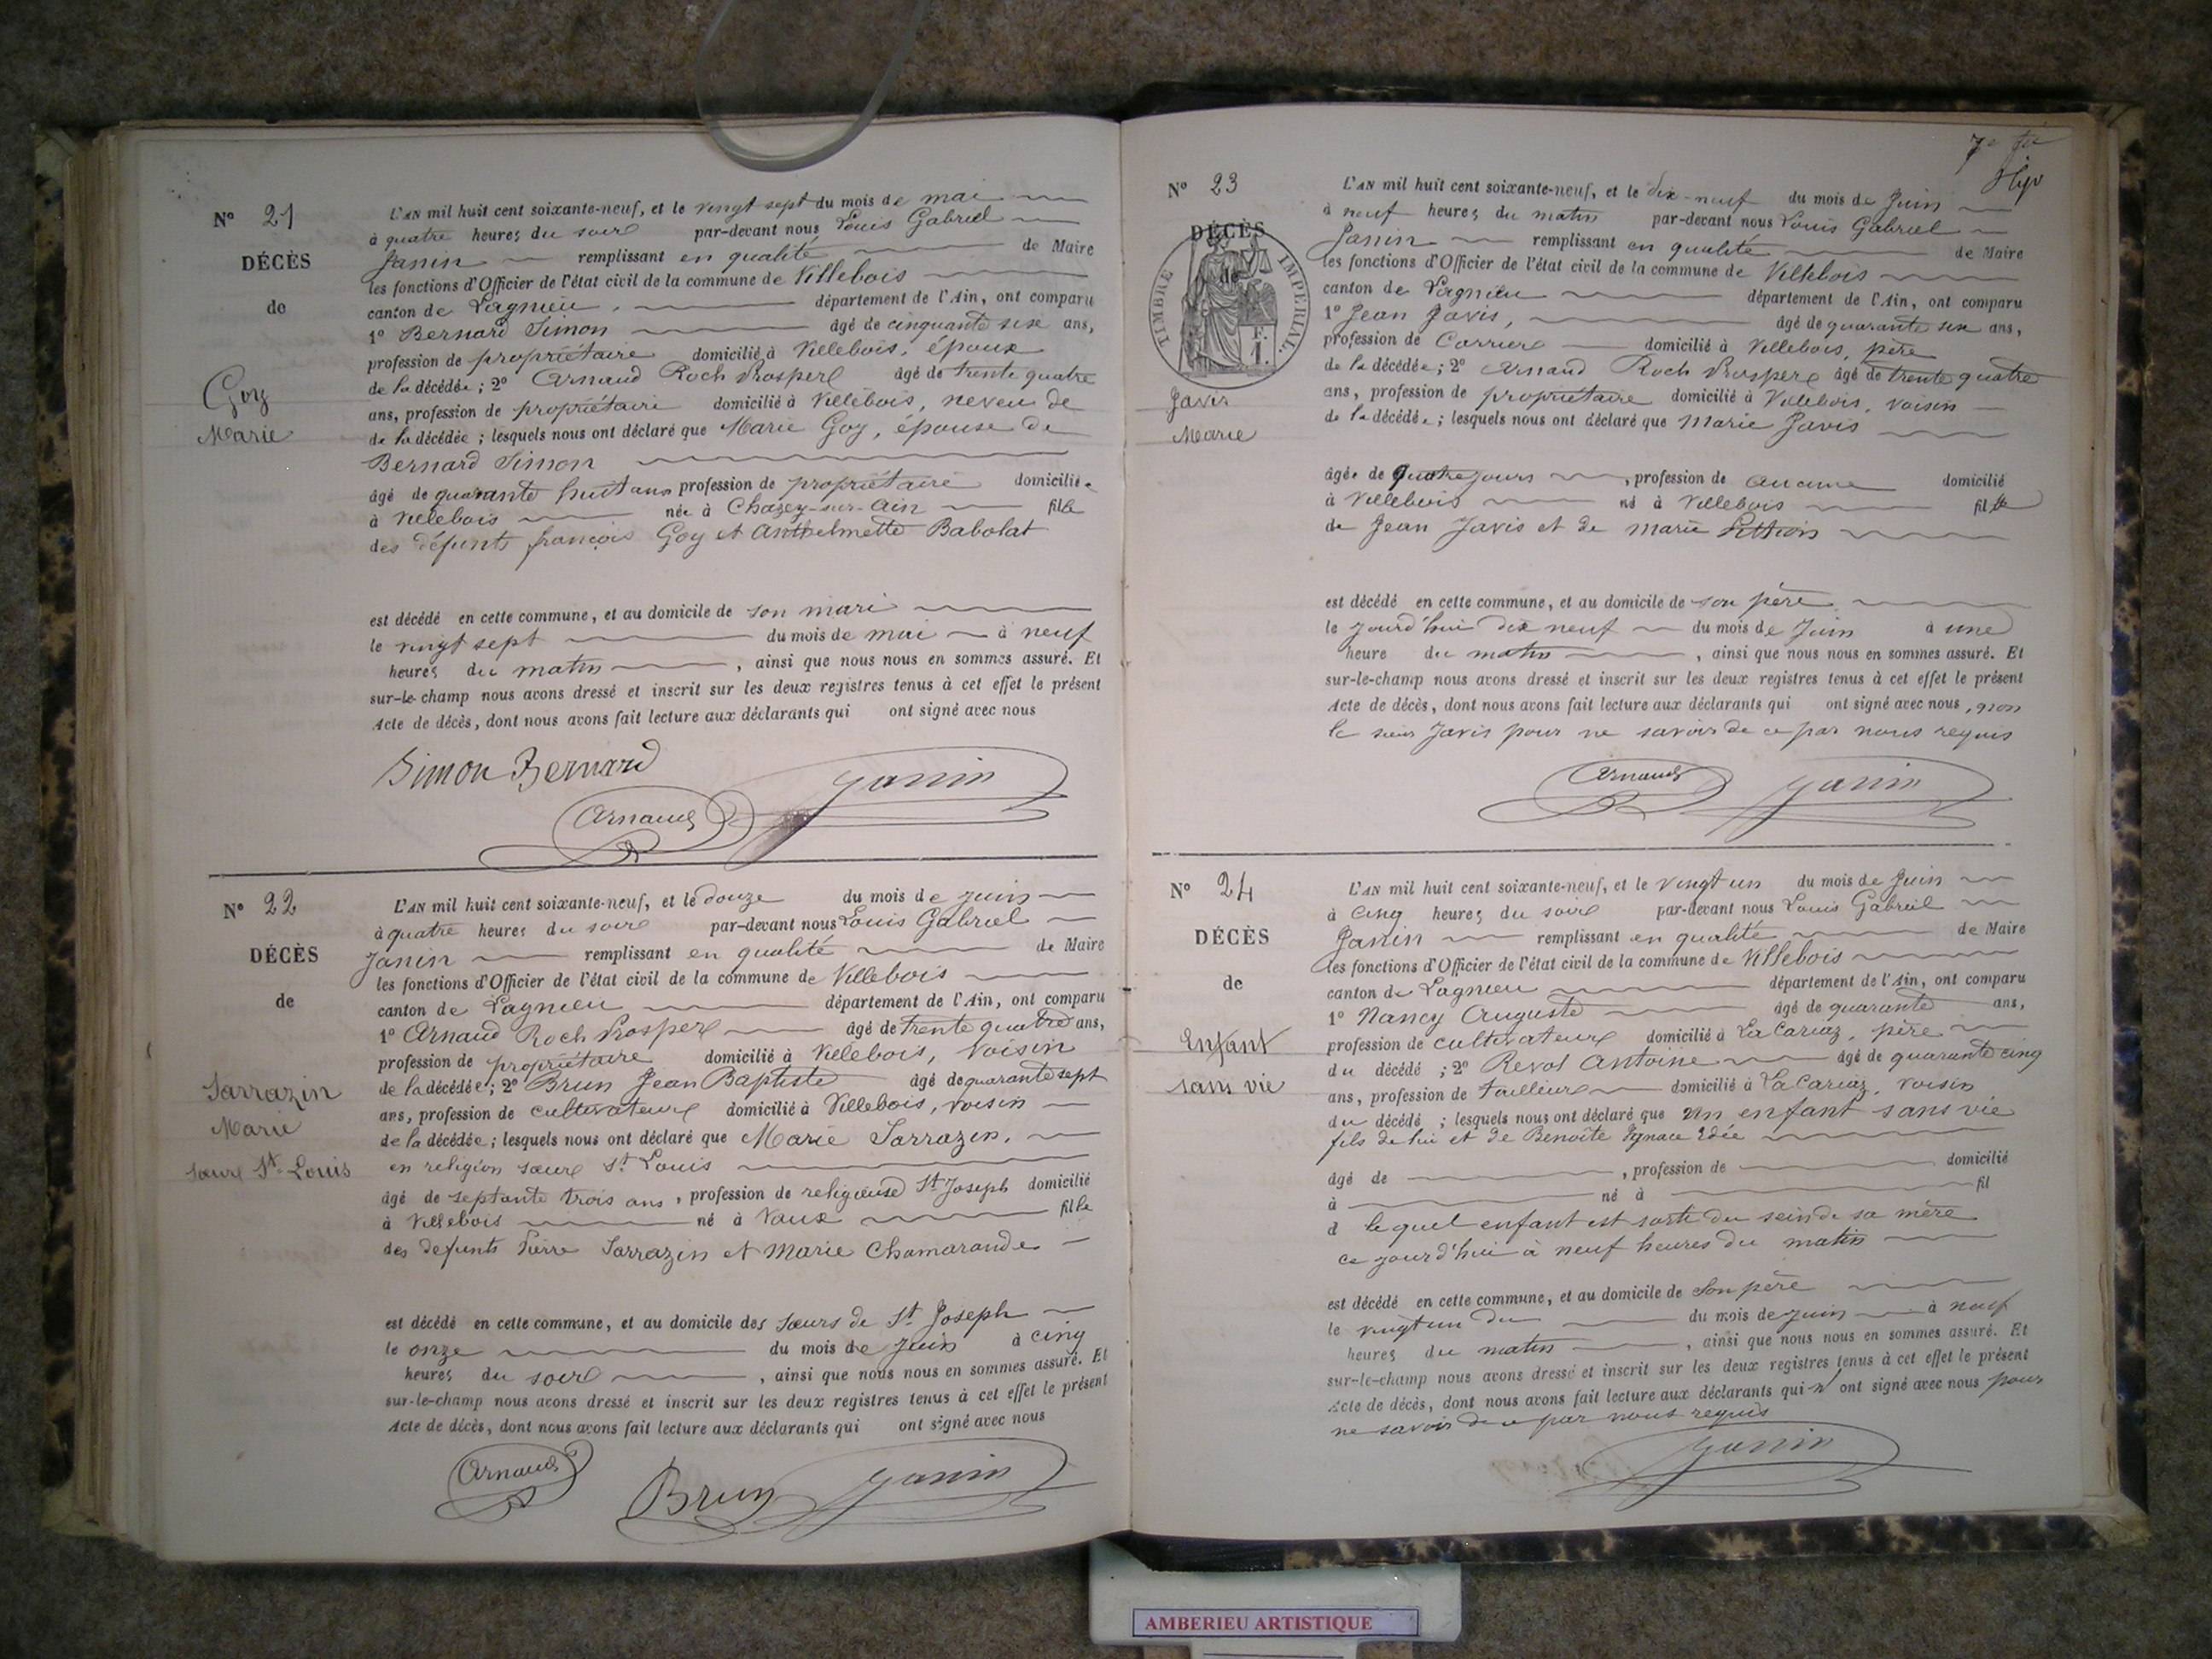 N° 21
DÉCÈS
de
Goy
Marie
L'AN mil huit cent soixante-neuf, et le vingt sept du mois de mai
à quatre heures du soir par-devant nous Louis Gabriel
Janin remplissant en qualité de Maire
les fonctions d'Officier de l'état civil de la commune de Villebois
canton de Lagnieu, département de l'Ain, ont comparu
1° Bernard Simon âgé de cinquante six ans,
profession de propriétaire domicilié à Villebois, époux
de la décédée; 2° Arnaud Roch Prosper âgé de trente quatre
ans, profession de propriétaire domicilié à Villebois, neveu de
de la décédée; lesquels nous ont déclaré que Marie Goy, épouse de
Bernard Simon
âgé de quarante huit ans profession de propriétaire domiciliée
à Villebois née à Chazey-sur-Ain fille
des défunts françois Goy et Anthelmette Babolat
est décédé en cette commune, et au domicile de son mari
le vingt sept du mois de mai à neuf
heures du matin, ainsi que nous nous en sommes assuré. Et
sur-le-champ nous avons dressé et inscrit sur les deux registres tenus à cet effet le présent
Acte de décès, dont nous avons fait lecture aux déclarants qui ont signé avec nous
Simon Bernard
Arnaud
Janin
N° 22
DÉCÈS
de
Sarrazin
Marie
sœur St Louis
L'AN mil huit cent soixante-neuf, et le douze du mois de juin
à quatre heures du soir par-devant nous Louis Gabriel
Janin remplissant en qualité de Maire
les fonctions d'Officier de l'état civil de la commune de Villebois
canton de Lagnieu département de l'Ain, ont comparu
1° Arnaud Roch Prosper âgé de trente quatre ans,
profession de propriétaire domicilié à Villebois, voisin
de la décédée; 2° Brun Jean Baptiste âgé de quarante sept
ans, profession de cultivateur domicilié à Villebois, voisin
de la décédée; lesquels nous ont déclaré que Marie Sarrazin,
en religion sœur St Louis
âgé de septante trois ans, profession de religieuse St Joseph domicilié
à Villebois né à Vaux fille
des defunts Pierre Sarrazin et Marie Chamarande
est décédé en cette commune, et au domicile des sœurs de St Joseph
le onze du mois de juin à cinq
heures du soir, ainsi que nous nous en sommes assuré. Et
sur-le-champ nous avons dressé et inscrit sur les deux registres tenus à cet effet le présent
Acte de décès, dont nous avons fait lecture aux déclarants qui ont signé avec nous
Arnaud
Brun
Janin
N° 23
DÉCÈS
de
TIMBRE IMPÉRIAL
F.
1.
Javis
Marie
L'AN mil huit cent soixante-neuf, et le dix-neuf du mois de Juin
à neuf heures du matin par-devant nous Louis Gabriel
Janin remplissant en qualité de Maire
les fonctions d'Officier de l'état civil de la commune de Villebois
canton de Lagnieu département de l'Ain, ont comparu
1° Jean Javis, âgé de quarante six ans,
profession de Carrier domicilié à Villebois, père
de la décédée; 2° Arnaud Roch Prosper âgé de trente quatre
ans, profession de propriétaire domicilié à Villebois, voisin
de la décédée; lesquels nous ont déclaré que Marie Javis
âgée de quatre jours, profession de aucune domicilié
à Villebois né à Villebois fille
de Jean Javis et de marie
est décédé en cette commune, et au domicile de son père
le jourd'hui dix neuf du mois de Juin à une
heure du matin, ainsi que nous nous en sommes assuré. Et
sur-le-champ nous avons dressé et inscrit sur les deux registres tenus à cet effet le présent
Acte de décès, dont nous avons fait lecture aux déclarants qui ont signé avec nous, non
le sieur Javis pour ne savoir de ce par nous requis
Arnaud
Janin
N° 24
DÉCÈS
de
Enfant
sans vie
L'AN mil huit cent soixante-neuf, et le vingt un du mois de Juin
à cinq heures du soir par-devant nous Louis Gabriel
Janin remplissant en qualité de Maire
les fonctions d'Officier de l'état civil de la commune de Villebois
canton de Lagnieu département de l'Ain, ont comparu
1° Nancy Auguste âgé de quarante ans,
profession de cultivateur domicilié à La Cariaz, père
du décédé; 2° Revol Antoine âgé de quarante cinq
ans, profession de tailleur domicilié à La Cariaz, voisin
du décédé; lesquels nous ont déclaré que un enfant sans vie
fils de lui et de Benoîte Ignace
âgé de, profession de domicilié
à né à fil
d lequel enfant est sorti du sein de sa mère
ce jourd'hui à neuf heures du matin
est décédé en cette commune, et au domicile de son père
le vingt un du du mois de juin à neuf
heures du matin, ainsi que nous nous en sommes assuré. Et
sur-le-champ nous avons dressé et inscrit sur les deux registres tenus à cet effet le présent
Acte de décès, dont nous avons fait lecture aux déclarants qui n'ont signé avec nous pour
ne savoir de ce par nous requis
Janin
AMBERIEU ARTISTIQUE